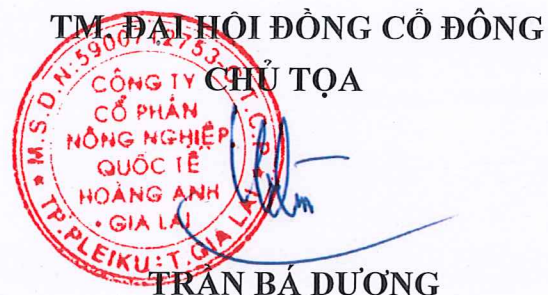 TM. ĐẠI HỘI ĐỒNG CỔ ĐÔNG
CHỦ TỌA
M.S.D.N:5900712753-C.T.C.P
CÔNG TY
CỔ PHẦN
NÔNG NGHIỆP
QUỐC TẾ
HOÀNG ANH
GIA LAI
TP.PLEIKU:T.GIA LAI
TRẦN BÁ DƯƠNG